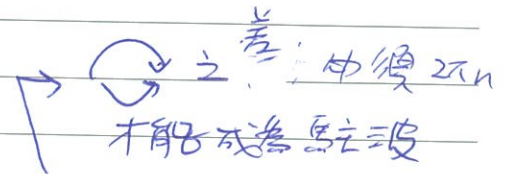 之差:φ須2πn
才能成為駐波